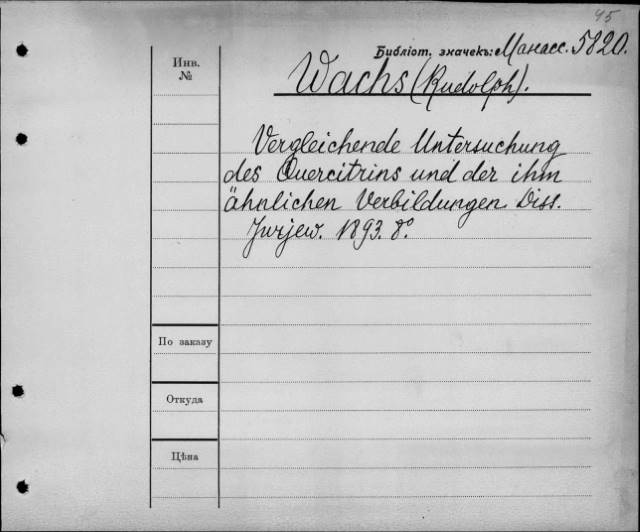 45
Библіот. значекъ: Манасс. 5820.
Инв.
№
Wachs (Rudolph).
Vergleichende Untersuchung
des Quercitrins und der ihm
ähnlichen Verbildungen. Diss.
Jurjew. 1893. 8°.
По заказу
Откуда
Цѣна